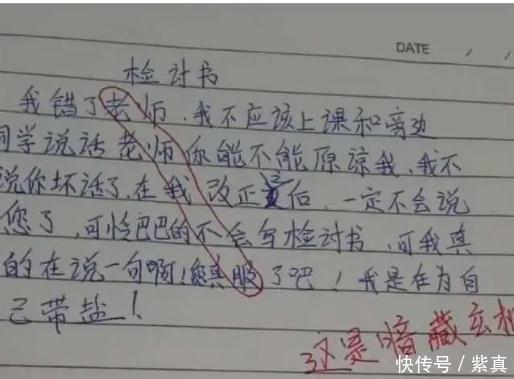 DATE / /
检讨书
我错了老师,我不应该上课和旁边
同学说话老师你能不能原谅我,我不
说你坏话了,在我改正后,一定不会说
您了,可怜巴巴的不会写检讨书,可我真
的在说一句啊!您真服了吧!我是在为自
己带盐!
这是暗藏玄机
快传号/紫真